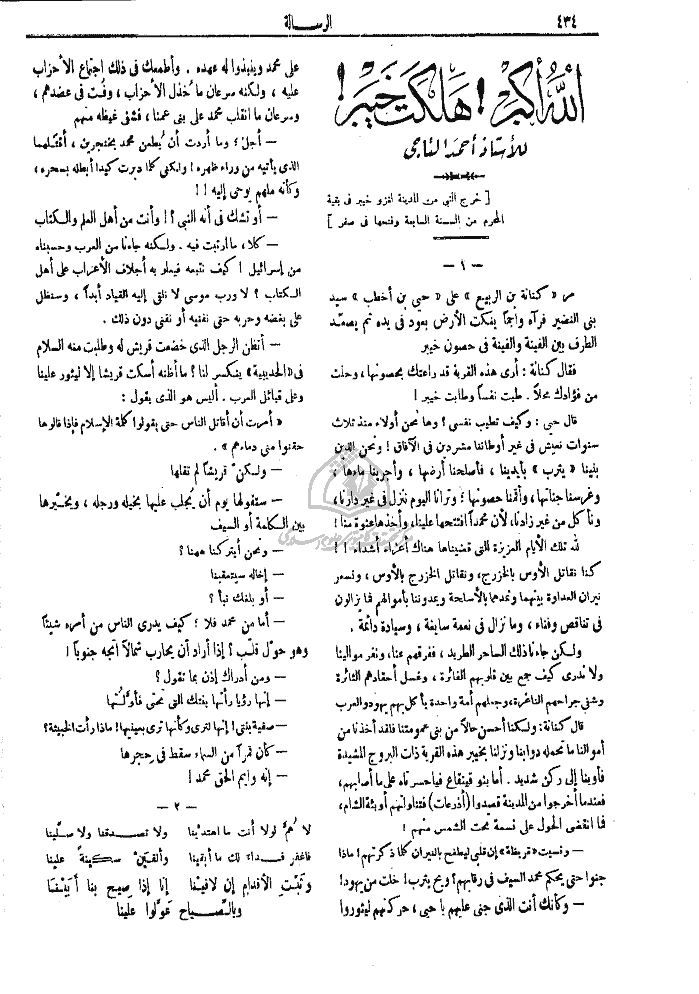 ٤٣٤
الرسالة
الله أكبر! هلكت خيبر!
للأستاذ أحمد التاجى
[ خرج النبي من المدينة لغزو خيبر فى بقية
المحرم من السنة السابعة وفتحها فى صفر ]
— ١ —
مر « كنانة بن الربيع » على « حيى بن أخطب » سيد
بنى النضير فرآه واجماً ينكت الأرض بعود فى يده ثم يصعد
الطرف بين الفينة والفينة فى حصون خيبر
فقال كنانة : أرى هذه القرية قد راعتك بحصونها ، وحلت
من فؤادك محلاً . طبت نفساً وطابت خيبر !
قال حيى : وكيف تطيب نفسى ؟ وها نحن أولاء منذ ثلاث
سنوات نعيش فى غير أوطاننا مشردين فى الآفاق ! ونحن الذين
بنينا « يثرب » بأيدينا ، فأصلحنا أرضها ، وأجرينا ماءها ،
وغرسنا جناتها ، وأقمنا حصونها ؛ وترانا اليوم ننزل فى غير دارنا ،
ونأكل من غير زادنا ، لأن محمداً افتتحها علينا ، وأخذها عنوة منا !
لله تلك الأيام العزيزة التى قضيناها هناك أعزاء أشداء ! !
كنا نقاتل الأوس بالخزرج ، ونقاتل الخزرج بالأوس ، ونسعر
نيران العداوة بينهما ونمدهما بالأسلحة ويمدوننا بأموالهم فما يزالون
فى تناقص وفناء ، وما نزال فى نعمة سابغة ، وسيادة دائمة .
ولكن جاءنا ذلك الساحر الطريد ، ففرقهم عنا ، ونفر موالينا
ولا ندرى كيف جمع بين قلوبهم الفائرة ، وغسل أحقادهم الثائرة
وشفى جراحهم الناغرة ، وجعلهم أمة واحدة يأكل بهم يهود والعرب
قال كنانة : ولكنا أحسن حالاً من بنى عمومتنا فلقد أخذنا من
أموالنا ما تحمله دوابنا ونزلنا بخيبر هذه القرية ذات البروج المشيدة
فأوينا إلى ركن شديد . أما بنو قينقاع فيا حسرتاه على ما أصابهم ،
فعندما أخرجوا من المدينة قصدوا ( أذرعات ) فتناولتهم أوبئة الشام ،
فما انقضى الحول على نسمة تحت الشمس منهم !
— ونسيت « قريظة » إن قلبى ليطفح بالنيران كلما ذكرتهم ! ماذا
جنوا حتى يحكم محمد السيف فى رقابهم ؟ ويح يثرب ! خلت من يهود !
— وكأنك أنت الذى جنى عليهم يا حيى ، حركتهم ليثوروا
على محمد وينبذوا له عهده . وأطمعك فى ذلك اجتماع الأحزاب
عليه ، ولكنه سرعان ما خذل الأحزاب ، وفت فى عضدهم ،
وسرعان ما انقلب محمد على بنى عمنا ، فشفى غيظه منهم
— أجل ؛ وما أردت أن يُطعن محمد بخنجرين ، أقتلهما
الذى يأتيه من وراء ظهره ! ولكنى كلما دبرت كيدا أبطله بسحره ،
وكأنه ملهم يوحى إليه ! !
— أو تشك فى أنه النبى ؟ ! وأنت من أهل العلم والكتاب
— كلا ، ما ارتبت فيه . ولكنه جاءنا من العرب وحسبناه
من إسرائيل ! كيف نتبعه فيعلو به أجلاف الأعراب على أهل
الكتاب ؟ لا ورب موسى لا نلقى إليه القياد أبداً ، وسنظل
على بغضه وحربه حتى نفنيه أو نفنى دون ذلك .
— أتظن الرجل الذى خضمت قريش له وطلبت منه السلام
فى « الحديبية » ينكسر لنا ؟ ما أظنه أسكت قريشا إلا ليثور علينا
وعلى قبائل العرب . أليس هو الذى يقول :
« أمرت أن أقاتل الناس حتى يقولوا كلمة الإسلام فإذا قالوها
حقنوا منى دماءهم » .
— ولكنْ قريشاً لم تقلها
— ستقولها يوم أن يُجلب عليها بخيله ورجله ، ويخيّرها
بين الكلمة أو السيف
— ونحن أيتركنا ههنا ؟
— إخاله سيتعقبنا
— أو بلغك نبأ ؟
— أما من محمد فلا ؛ كيف يدرى الناس من أمره شيئاً
وهو حوّل قلّب ؟ إذا أراد أن يحارب شمالاً اتجه جنوباً !
— ومن أدراك إذن بما تقول ؟
— إنها رؤيا رأتها بنتك التى تحتى فأولتها
— صفية بنتى ! إنها لترى وكأنها ترى بعينيها ! ماذا رأت الخبيثة ؟
— كأن قمراً من السماء سقط فى حجرها
— إنه وايم الحق محمد !
— ٢ —
لا هُمّ لولا أنت ما اهتدينا ولا تصدقنا ولا صلينا
فاغفر فداء لك ما أبقينا وألقين سكينة علينا
وثبت الأقدام إن لاقينا إنا إذا صيح بنا أتينا
وبالصياح عوّلوا علينا